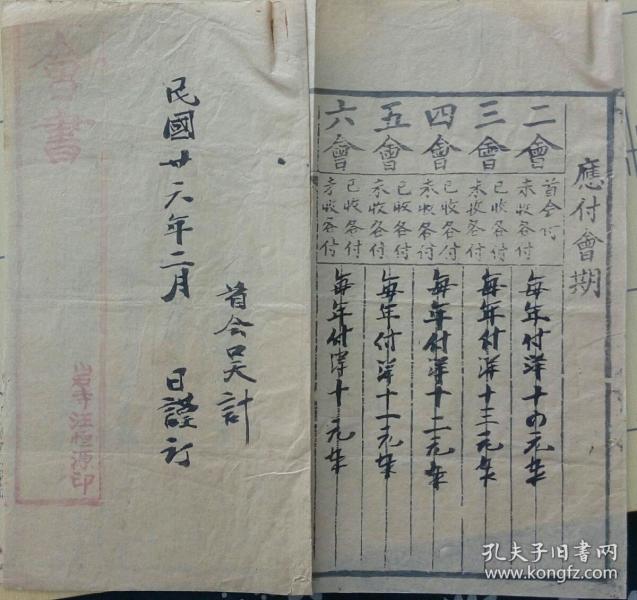 會書
民國廿六年二月 日謹訂
首会吴計
岩寺汪恒源印
應付會期
二會
首会付
未收各付
每年付洋十四元年
三會
已收各付
未收各付
每年付洋十三元年
四會
已收各付
未收各付
每年付洋十二元年
五會
已收各付
未收各付
每年付洋十一元年
六會
已收各付
未收各付
每年付洋十元年
孔夫子旧书网
www.kongfz.com